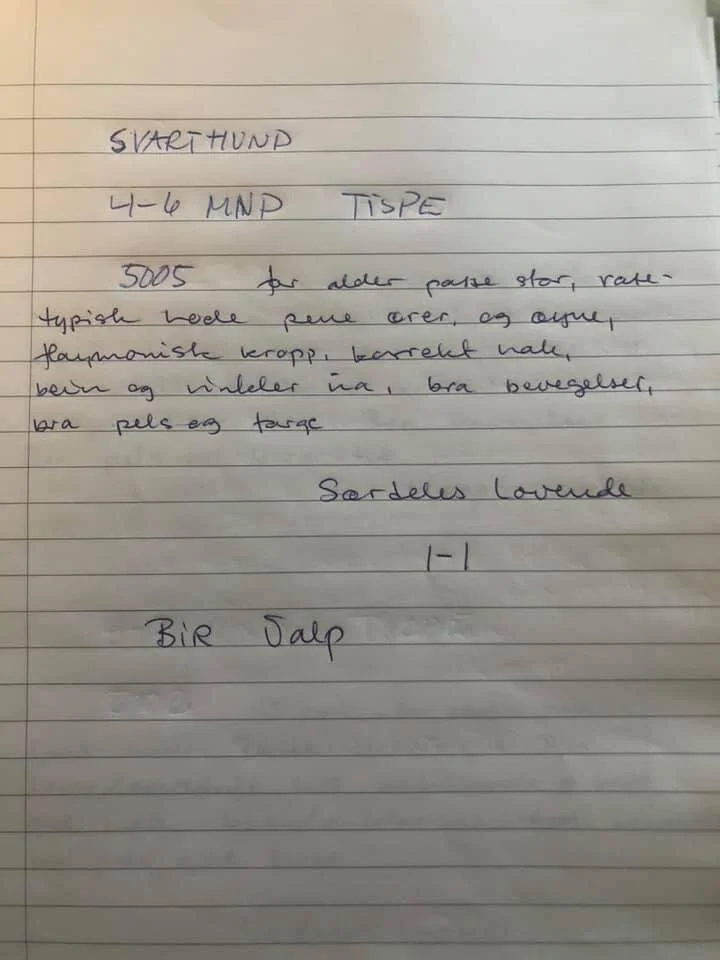 SVARTHUND
4-6 MND TISPE
5005 for alder passe stor, rase-
typisk hode pene ører, og øyne,
harmonisk kropp, korrekt hale,
bein og vinkler bra, bra bevegelser,
bra pels og farge
Særdeles Lovende
1-1
BiR Valp